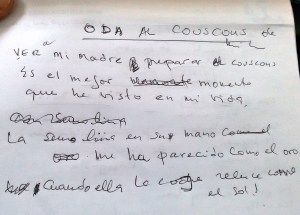 ODA AL COUSCOUS de
VER a mi madre preparar el couscous
Es el mejor momento
que he visto en mi vida.
La semo linia en su mano
me ha parecido como el oro.
Cuando ella lo coge reluce como
el sol!